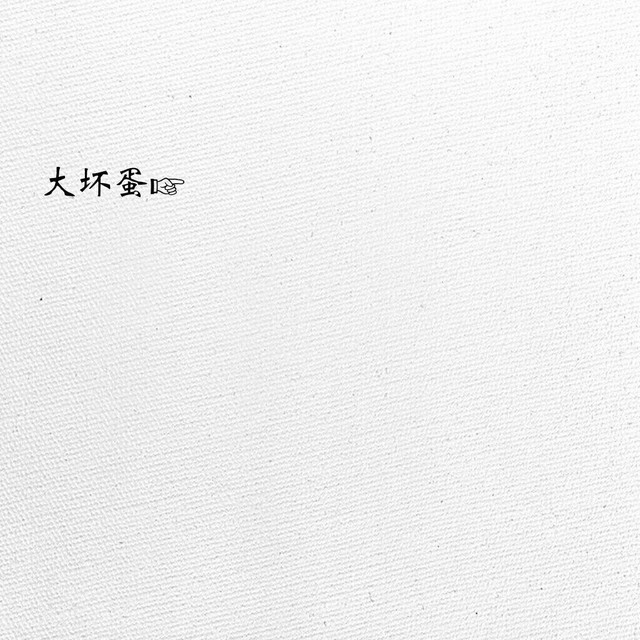 大坏蛋☞